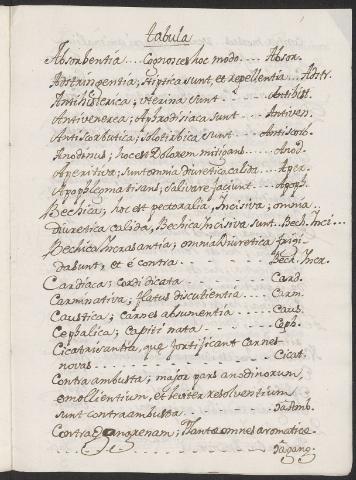 tabula
Absorbentia... Cognosces hoc modo.... Absor.
Adstringentia; Stiptica sunt, et repellentia... Adstr.
Antihisterica; Uterina sunt - - - - - Antihist.
Antivenerea; Aphrodisiaca sunt - - - Antiven.
Antiscorbutica; solotirbica sunt - - - Antiscorb.
Anodinus; hoc est Dolorem mitigans - - - - Anod.
Aperitiva; sunt omnia diuretica calida - - Aper.
Apophlegmatisans; salivare faciunt. - - - Apoph.
Bechicas; hoc est pectoralia, Incisiva; omnia
Diuretica calida, Bechica Incisiva sunt.. Bech. Inci...
Bechica Incrasantia; omnia Diuretica frigi
da sunt, et è contra - - - - - - - - Bech. Incr.
Cardiaca; cordi dicata - - - - - - - - Card.
Carminativa; flatus discutientia - - - - Carm.
Caustica; carnes absumentia - - - - Caus.
Cephalica; capiti nata - - - - - - - Ceph.
Cicatrisantia, quę fortificant carnes
novas - - - - - - - - - - - - - - - Cicat.
Contra ambusta; major pars anodinorum,
emollientium, et leviter resolventium
sunt contra ambusta - - - - - - - -
Contra Gangrenam; Plantæ omnes aromaticę